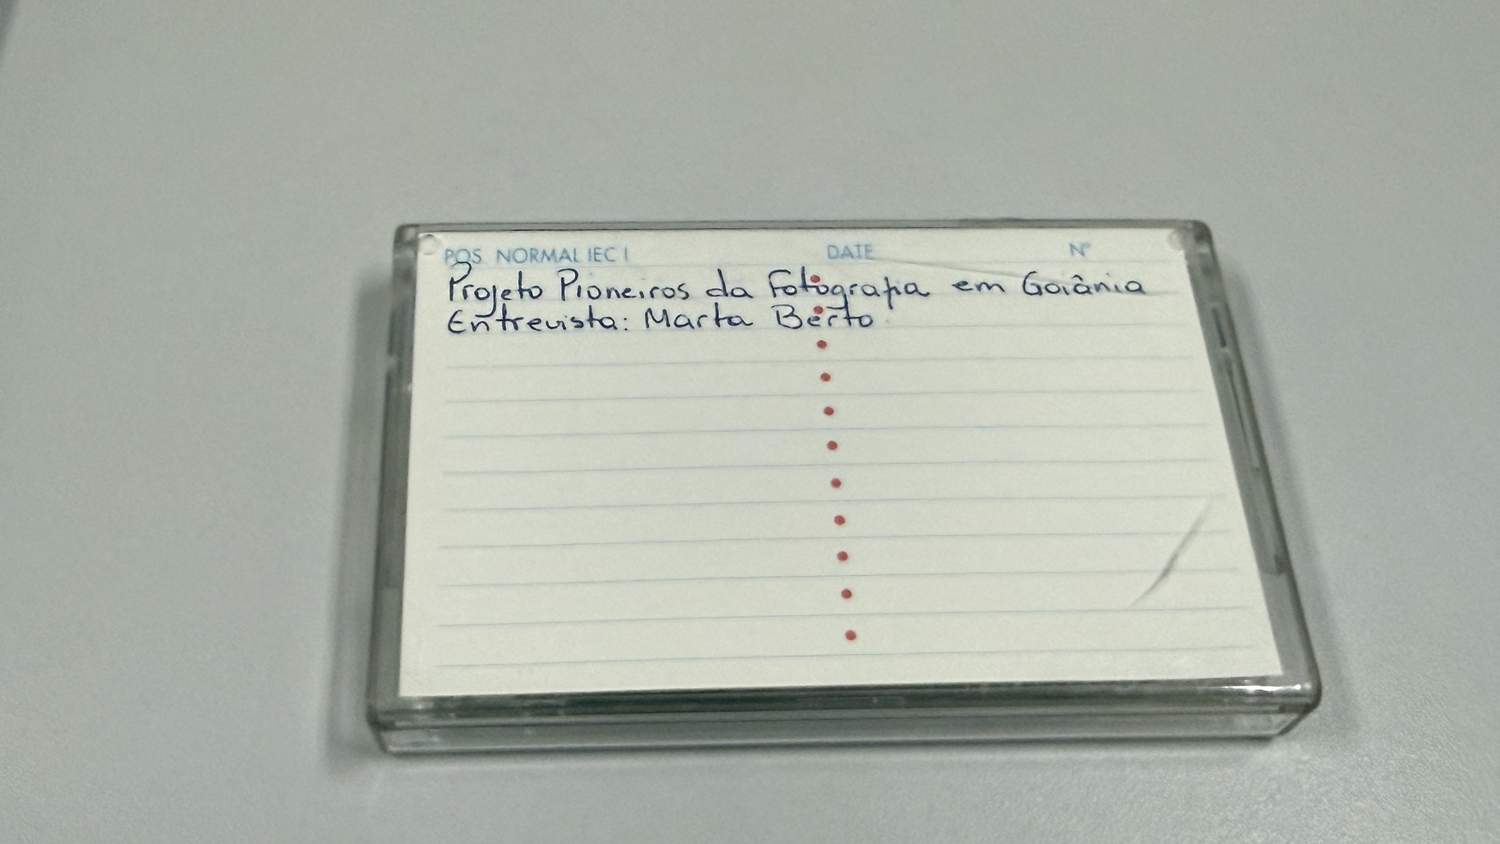 POS NORMAL IEC I DATE Nº
Projeto Pioneiros da Fotografia em Goiânia
Entrevista: Marta Berto